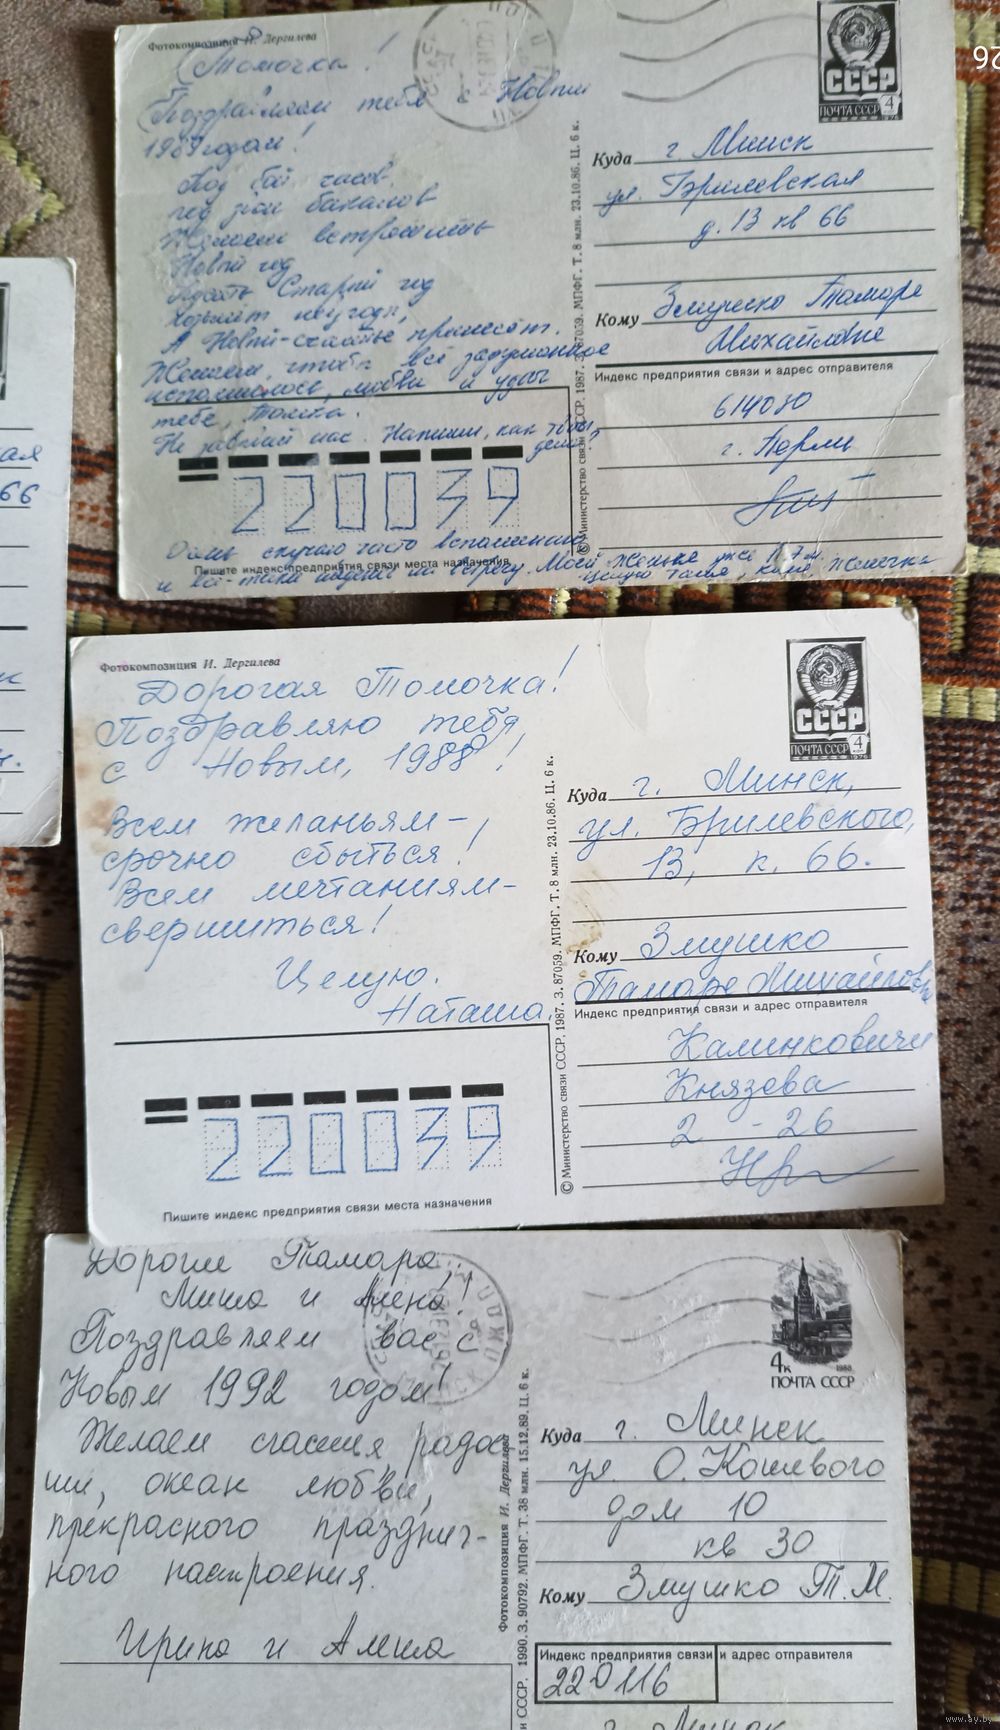 Фотокомпозиция И. Дергилева
Томочка!
Поздравляем тебя с Новым
1989 годом!
Под бой часов,
под звон бокалов
Желаем встретить
Новый год
Пусть Старый год
невзгоды,
А Новый - счастье принесёт.
Желаем, чтобы всё задуманное
исполнилось, любви и удачи
тебе, Томка.
Не забывай нас. Напиши, как твои
дела?
220039
Пишите индекс предприятия связи места назначения
Очень скучаю часто вспоминаю
и всё-таки надеюсь на встречу. Моей Женьке уже
© Министерство связи СССР. 1987. З. 87059. МПФГ. Т. 8 млн. 23.10.86. Ц. 6 к.
СССР
ПОЧТА СССР 4
1976
Куда г. Минск
ул. Брилевская
д. 13 кв 66
Кому Змушко Тамаре
Михайловне
Индекс предприятия связи и адрес отправителя
614030
г. Пермь
ая
66
Фотокомпозиция И. Дергилева
Дорогая Томочка!
Поздравляю тебя,
с Новым, 1988!
Всем желаньям -
срочно сбыться!
Всем мечтаниям -
свершиться!
Целую.
Наташа.
220039
Пишите индекс предприятия связи места назначения
© Министерство связи СССР. 1987. З. 87059. МПФГ. Т. 8 млн. 23.10.86. Ц. 6 к.
СССР
ПОЧТА СССР 4
1976
Куда г. Минск,
ул. Брилевского,
13, к. 66.
Кому Змушко
Тамаре Михайловне
Индекс предприятия связи и адрес отправителя
Калинковичи
Князева
2 - 26
Дорогие Тамара,
Миша и Алена!
Поздравляем вас с
Новым 1992 годом!
Желаем счастия, радос
ти, океан любви,
прекрасного празднич-
ного настроения.
Ирина и Алеша
Фотокомпозиция И. Дергилева
СССР. 1990. З. 90792. МПФГ. Т. 38 млн. 15.12.89. Ц. 6 к.
4к 1988
ПОЧТА СССР
Куда г. Минск
ул. О. Кошевого
дом 10
кв 30
Кому Змушко Т. М.
Индекс предприятия связи и адрес отправителя
220116
г. Минск
www.ay.by